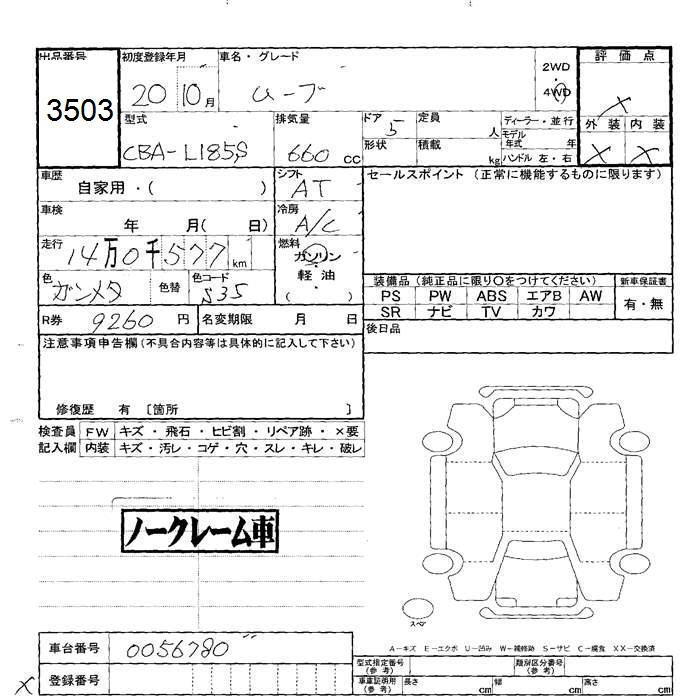 出品番号 初度登録年月 車名・グレード 2WD 評価点
3503 20 10月 ムーブ 4WD ×
型式 排気量 ドア 5 定員 人 ディーラー・並行 外装 内装
CBA-L185S 660 cc 形状 積載 kg モデル年式 年 ハンドル 左・右 × ×
車歴 自家用・( ) シフト AT セールスポイント (正常に機能するものに限ります)
車検 年 月( 日) 冷房 A/C
走行 14万0千577km 燃料 ガソリン
軽油
( )
色 ガンメタ 色替 色コード S35 装備品 (純正品に限り○をつけてください) 新車保証書
PS PW ABS エアB AW 有・無
SR ナビ TV カワ
R券 9260 円 名変期限 月 日 後日品
注意事項申告欄(不具合内容等は具体的に記入して下さい)
修復歴 有 〔箇所 〕
検査員 FW キズ・飛石・ヒビ割・リペア跡・×要
記入欄 内装 キズ・汚レ・コゲ・穴・スレ・キレ・破レ
ノークレーム車
スペア
車台番号 0056780 A-キズ E-エクボ U-凹み W-補修跡 S-サビ C-腐食 XX-交換済
登録番号 型式指定番号(参考) 類別区分番号(参考)
× 車庫証明用(参考) 長さ cm 幅 cm 高さ cm